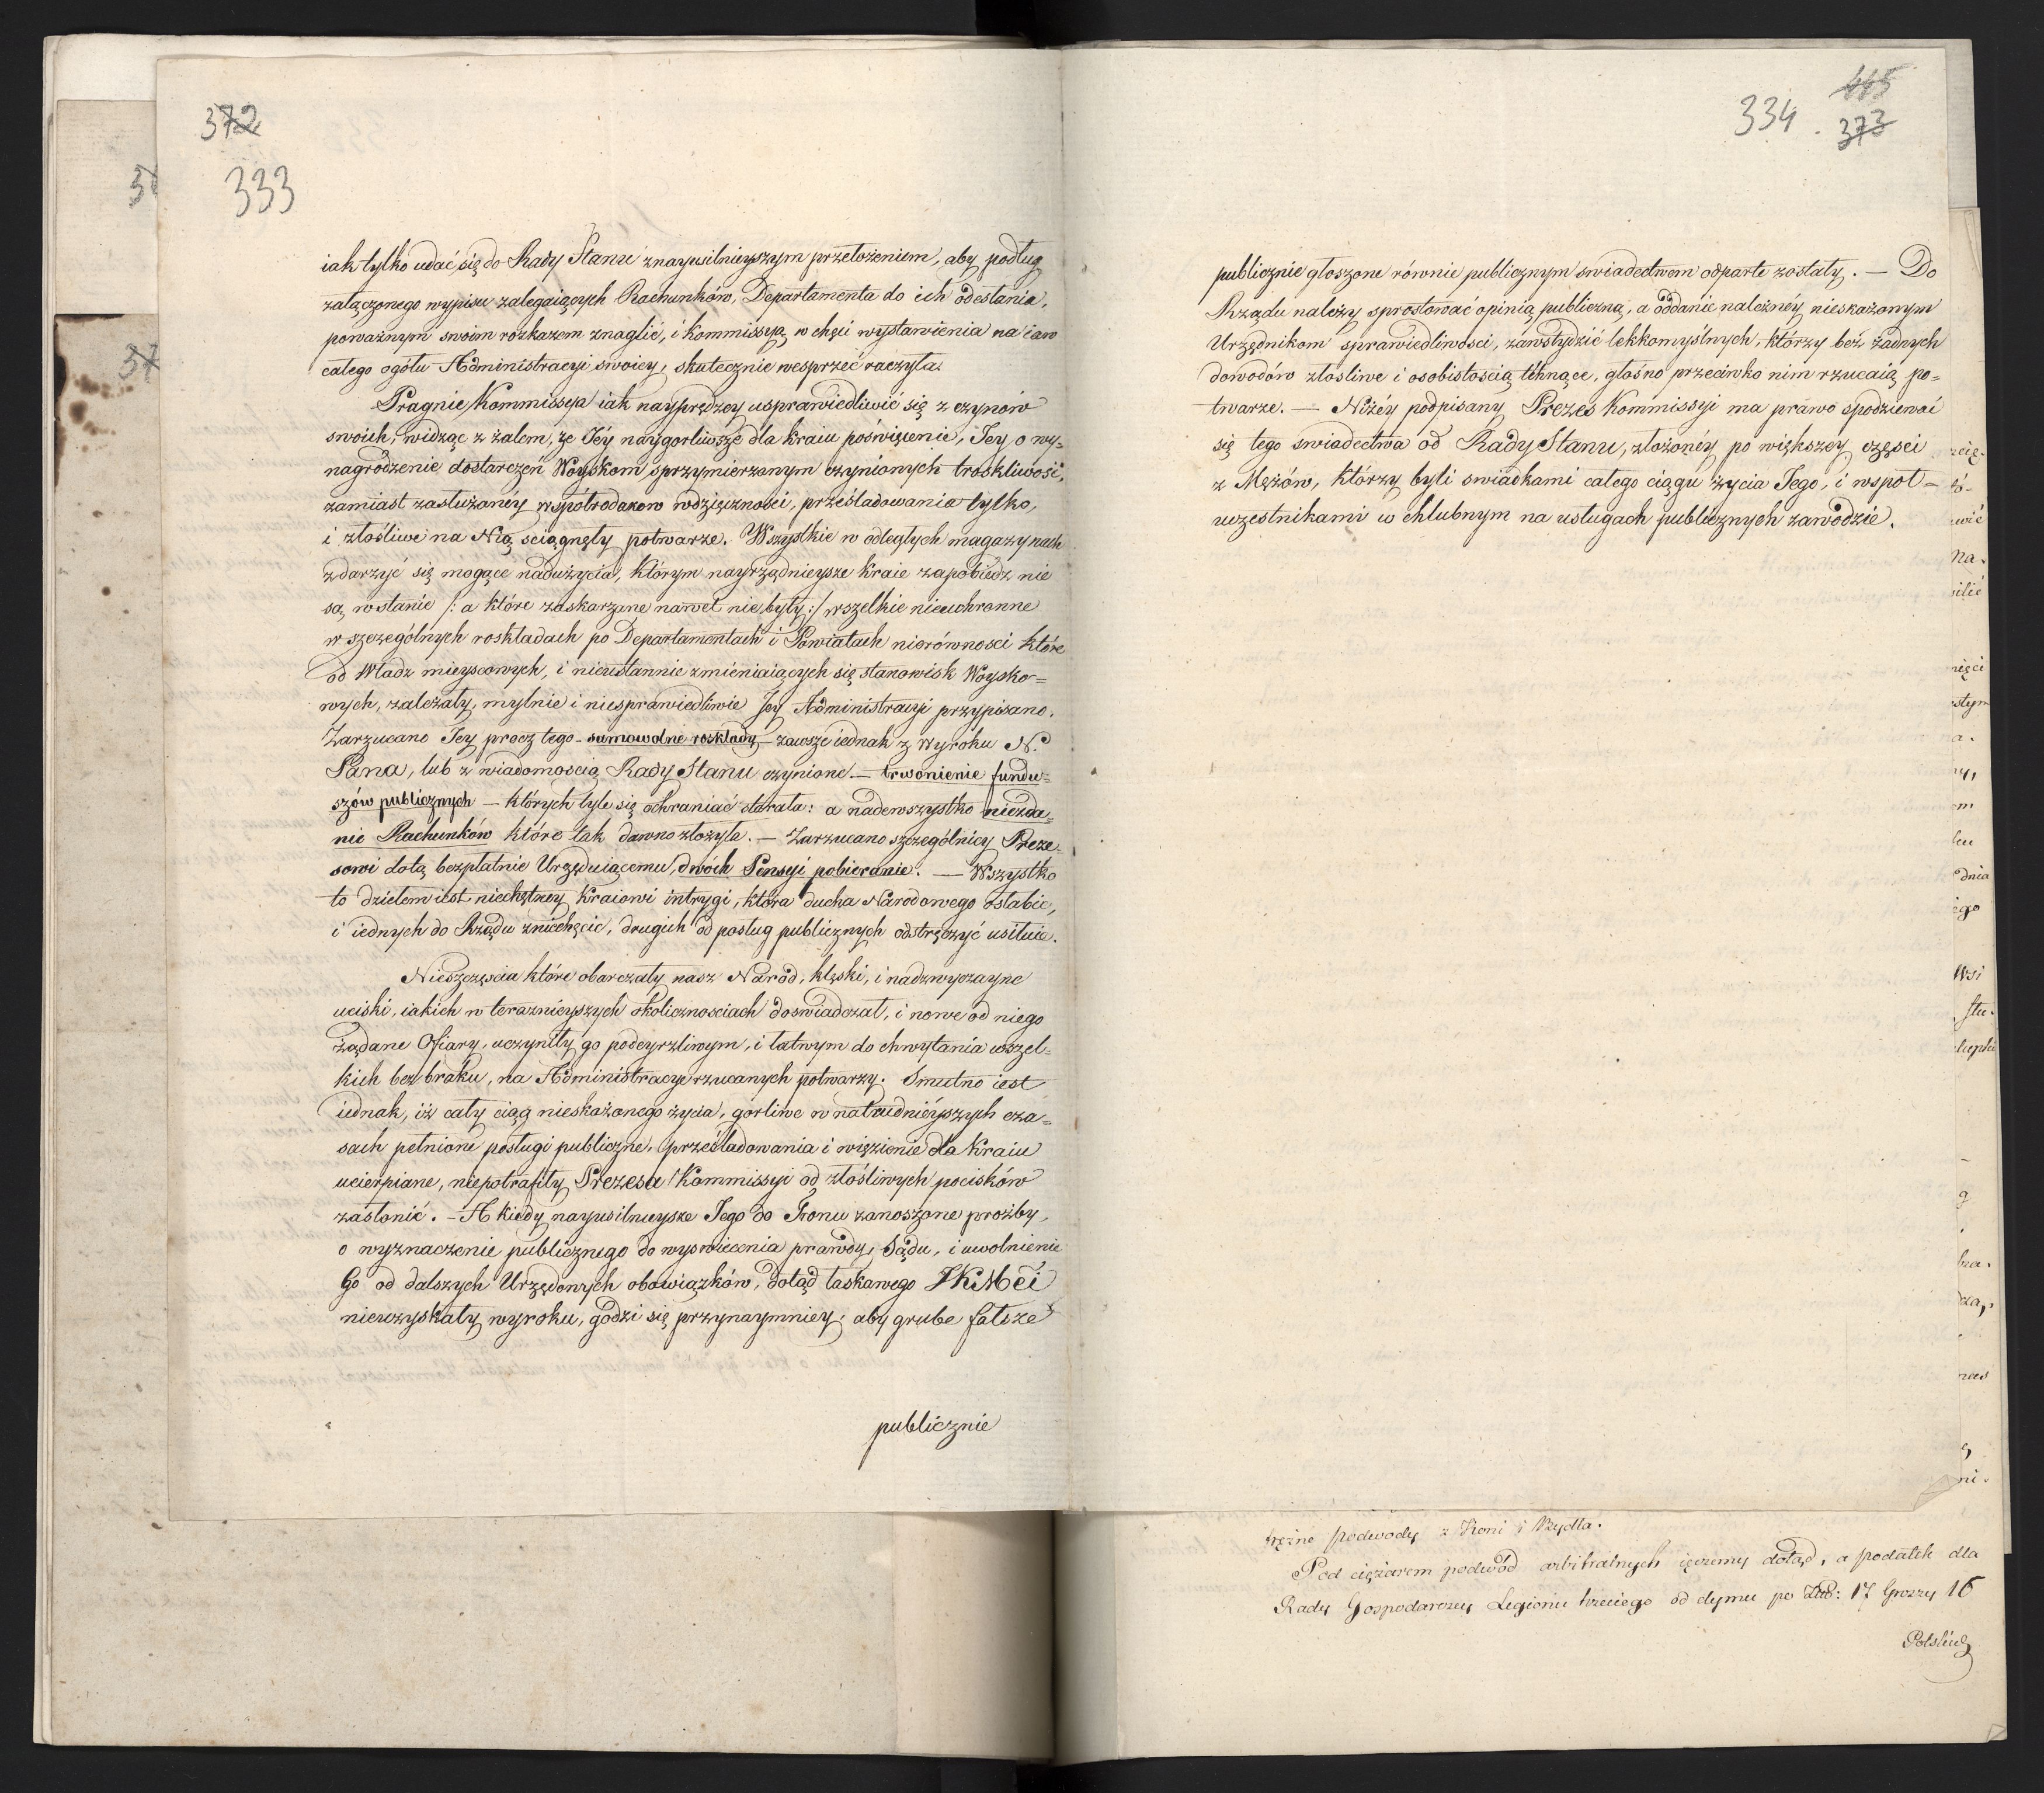 372
333
iak tylko udać się do Rady Stanu znayusilnieyszym przełożeniem, aby podług
załączonego wypisu zalegaiących Rachunków, Departamenta do ich odesłania,
poważnym swoim rozkazem znaglić, i Kommissyą, w chęci wystawienia na iaw
całego ogółu Administracyi swoiey, skutecznie wesprzeć raczyła.
Pragnie Kommissya iak nayprędzey usprawiedliwić się z czynów
swoich, widząc z żalem, że Jéy naygorliwsze dla kraiu poświęcenie, Jey o wy=
nagrodzenie dostarczeń Woyskom sprzymierzonym czynionych troskliwość,
zamiast zasłużonéy współrodaków wdzięczności, prześladowania tylko,
i złośliwe na Nią sciągnęły potwarze. Wszystkie w odległych magazynach
zdarzyć się mogące nadużycia, którym nayrządnieysze kraie zapobiedz nie
są wstanie /: a które zaskarżone nawet nie były :/ wszelkie nieuchronne
w szczególnych roskładach po Departamentach i Powiatach nierówności które
od Władz mieyscowych, i nieustannie zmieniaiących się stanowisk Woysko=
wych, zależały, mylnie i niesprawiedliwie Jey Administracyi przypisano.
Zarzucano Jey procz tego – samowolne roskłady – zawsze iednak z Wyroku N.
Pana, lub z wiadomością Rady Stanu czynione. – trwonienie fundu=
szów publicznych – których tyle się ochraniać starała: a nadewszystko niezda=
nie Rachunków które tak dawno złożyła. – Zarzucano szczególniey Preze=
sowi dotą bezpłatnie Urzęduiącemu, dwóch Pensyi pobieranie. — Wszystko
to dziełem iest niechętney Kraiowi intrygi, która ducha Narodowego osłabić,
i iednych do Rządu zniechęcić, drugich od posług publicznych odstręczyć usiłuie.
Nieszczęścia które obarczały nasz Naród, klęski, i nadzwyczayne
uciski, iakich w teraznieyszych okolicznosciach doswiadczał, i nowe od niego
żądane Ofiary, uczyniły go podeyrzliwym, i łatwym do chwytania wszel=
kich bez braku, na Administracye rzucanych potwarzy. Smutno iest
iednak, iż cały ciąg nieskażonego życia, gorliwe w natrudnieyszych cza=
sach pełnione posługi publiczne, prześladowania i więzienie dla Kraiu
ucierpiane, niepotrafiły Prezesa Kommissyi od złośliwych pocisków
zasłonić. – A kiedy nayusilnieysze Jego do Tronu zanoszone prożby,
o wyznaczenie publicznego do wyswiecenia prawdy, Sądu, i uwolnienie
Go od dalszych Urzędowych obowiązków, dotąd łaskawego JKMći
nieuzyskały wyroku, godzi się przynaymniey, aby grube fałsze
publicznie
445
334. 373
publicznie głoszone równie publicznym swiadectwem odparte zostały. — Do
Rządu należy sprostować opinią publiczną, a oddanie należnéy nieskażonym
Urzędnikom sprawiedliwosci, zawstydzić lekkomyślnych, którzy bez żadnych
dowodów złosliwe i osobistością tchnące, głośno przeciwko nim rzucaią po=
twarze. — Niżéy podpisany Prezes Kommissyi ma prawo spodziewać
się tego swiadectwa od Rady Stanu, złożonéy po większey części
z Mężów, którzy byli swiadkami całego ciągu życia Jego, i wspoł=
uczestnikami w chlubnym na usługach publicznych zawodzie.
podwody z Koni i Bydła.
Pod ciężarem podwód arbitralnych ięczemy dotąd, a podatek dla
Rady Gospodarczey Legionu trzeciego od dymu po Złło: 17 Groszy 16